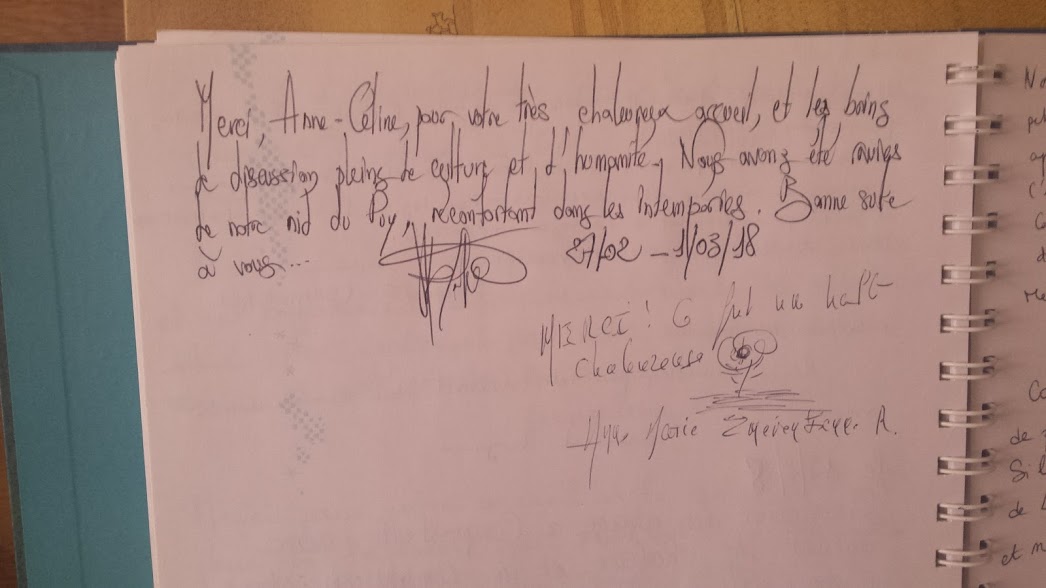 Merci, Anne-Céline, pour votre très chaleureux accueil, et les brins
de discussion pleins de culture et d'humanité. Nous avons été ravies
de notre nid du Puy, réconfortant dans les intempéries. Bonne suite
à vous...
27/02 - 1/03/18
MERCI ! Ce fut une halte
chaleureuse
Marie
R.
No
Co
de
Si l
de
et n